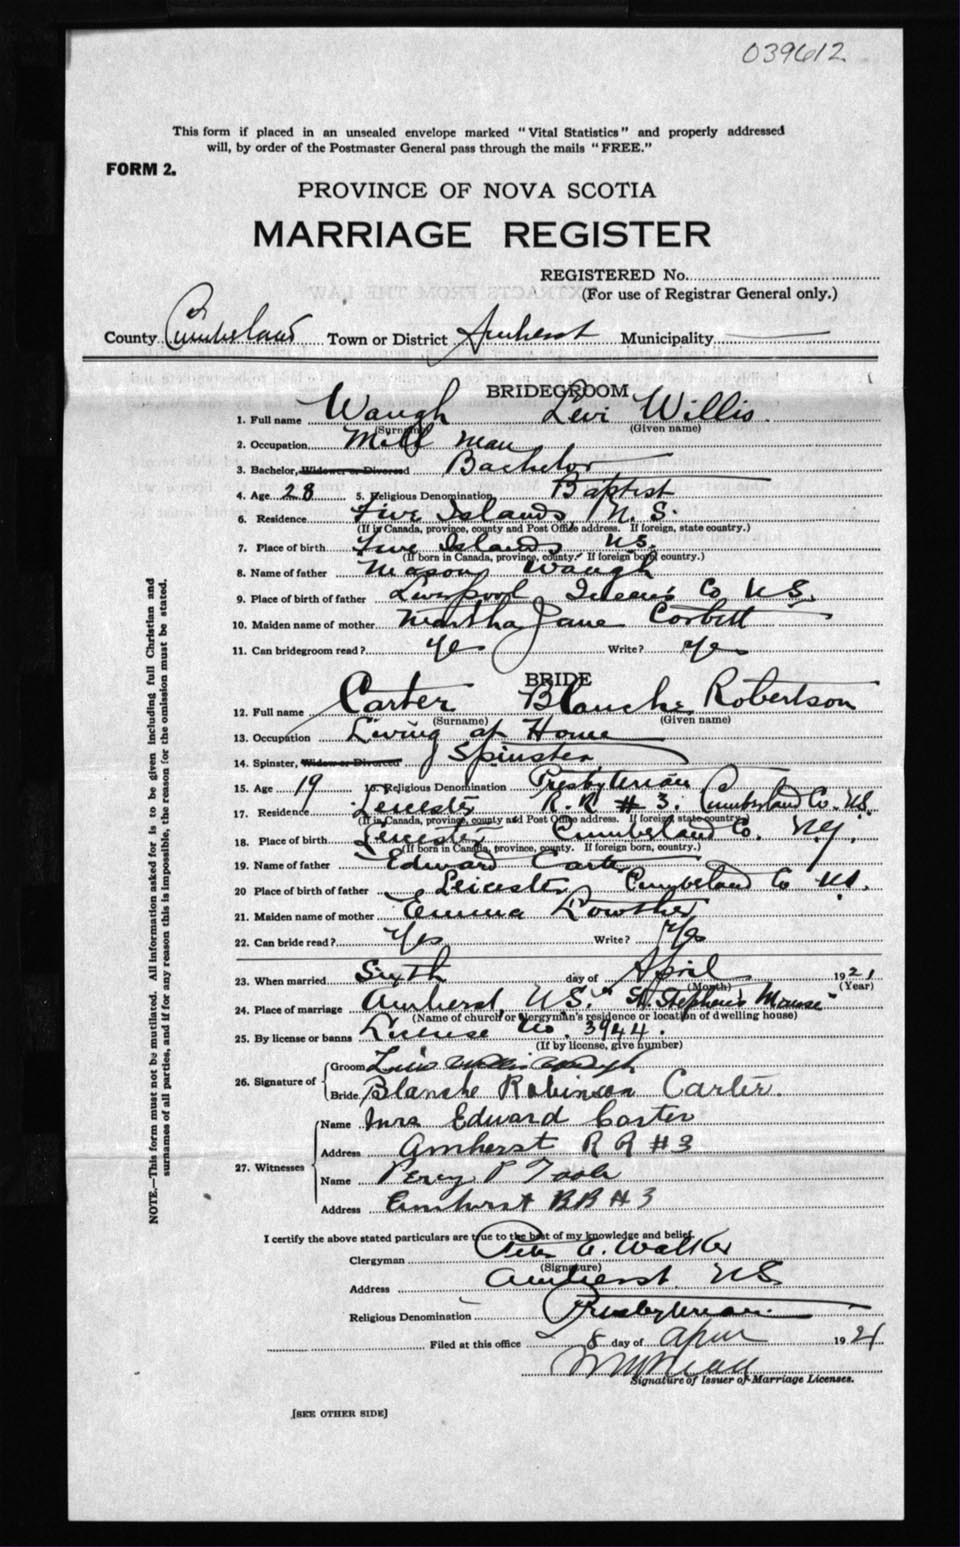 039612
This form if placed in an unsealed envelope marked "Vital Statistics" and properly addressed
will, by order of the Postmaster General pass through the mails "FREE."
FORM 2.
PROVINCE OF NOVA SCOTIA
MARRIAGE REGISTER
REGISTERED No.
(For use of Registrar General only.)
County Cumberland Town or District Amherst Municipality
BRIDEGROOM
1. Full name Waugh Levi Willis
(Surname) (Given name)
2. Occupation Mill man
3. Bachelor, Widower or Divorced Bachelor
4. Age 28 5. Religious Denomination Baptist
6. Residence Five Islands N. S.
(If in Canada, province, county and Post Office address. If foreign, state country.)
7. Place of birth Five Islands N.S.
(If born in Canada, province, county. If foreign born country.)
8. Name of father Mason Waugh
9. Place of birth of father Liverpool Queens Co N.S.
10. Maiden name of mother Martha Jane Corbett
11. Can bridegroom read? Yes Write? Yes
BRIDE
12. Full name Carter Blanche Robertson
(Surname) (Given name)
13. Occupation Living at Home
14. Spinster, Widow or Divorced Spinster
15. Age 19 16. Religious Denomination Presbyterian
17. Residence Leicester R.R # 3. Cumberland Co. N.S.
(If in Canada, province, county and Post Office address. If foreign state country.)
18. Place of birth Leicester Cumberland Co. N.S.
(If born in Canada, province, county. If foreign born, country.)
19. Name of father Edward Carter
20 Place of birth of father Leicester Cumberland Co N.S.
21. Maiden name of mother Emma Lowther
22. Can bride read? Yes Write? Yes
23. When married Sixth day of April 1921
(Month) (Year)
24. Place of marriage Amherst, N.S. "St. Stephen's Manse"
(Name of church or clergyman's residence or location of dwelling house)
25. By license or banns License No. 3944.
(If by license, give number)
26. Signature of
Groom Levi Willis Waugh
Bride Blanche Robinson Carter.
27. Witnesses
Name Mrs Edward Carter
Address Amherst R R # 3
Name Percy P
Address Amherst RR # 3
I certify the above stated particulars are true to the best of my knowledge and belief.
Clergyman Walker
(Signature)
Address Amherst N.S.
Religious Denomination Presbyterian.
Filed at this office 8 day of April 1921
Signature of Issuer of Marriage Licenses.
[SEE OTHER SIDE]
NOTE.—This form must not be mutilated. All information asked for is to be given including full Christian and
surnames of all parties, and if for any reason this is impossible, the reason for the omission must be stated.